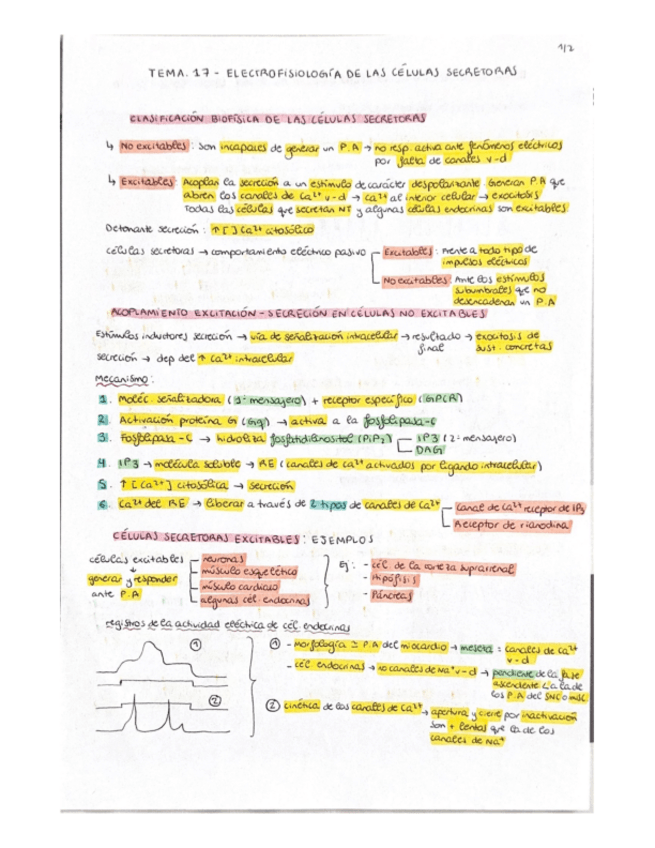 1/2
TEMA. 17 - ELECTROFISIOLOGÍA DE LAS CÉLULAS SECRETORAS
CLASIFICACIÓN BIOFÍSICA DE LAS CÉLULAS SECRETORAS
↳ No excitables: son incapaces de generar un P.A → no resp. activa ante fenómenos eléctricos
por falta de canales v-d
↳ Excitables: Acoplan la secreción a un estímulo de carácter despolarizante. Generan P.A que
abren los canales de Ca²⁺ v-d → Ca²⁺ al interior celular → exocitosis
Todas las células que secretan NT y algunas células endocrinas son excitables.
Detonante secreción: ↑[ ] Ca²⁺ citosólico
células secretoras → comportamiento eléctrico pasivo
Excitables: Frente a todo tipo de
impulsos eléctricos
No excitables: Ante los estímulos
subumbrales que no
desencadenan un P.A
ACOPLAMIENTO EXCITACIÓN - SECRECIÓN EN CÉLULAS NO EXCITABLES
Estímulos inductores secreción → vía de señalización intracelular → resultado → exocitosis de
final sust. concretas
secreción → dep del ↑ Ca²⁺ intracelular
Mecanismo:
1. Moléc. señalizadora (1º mensajero) + receptor específico (GPCR)
2. Activación proteína G (Gq) → activa a la fosfolipasa-C
3. Fosfolipasa-C → hidroliza fosfatidilinositol (PiP₂)
IP3 (2º mensajero)
DAG
4. IP3 → molécula soluble → RE (canales de Ca²⁺ activados por ligando intracelular)
5. ↑ [Ca²⁺] citosólica → secreción
6. Ca²⁺ del RE → liberar a través de 2 tipos de canales de Ca²⁺
Canal de Ca²⁺ receptor de IP₃
Receptor de rianodina
CÉLULAS SECRETORAS EXCITABLES: EJEMPLOS
células excitables
generar y responder
ante P.A
neuronas
músculo esquelético
músculo cardiaco
algunas cél. endocrinas
Ej: - cél. de la corteza suprarrenal
- Hipófisis
- Páncreas
registros de la actividad eléctrica de cél. endocrinas
①
②
① - morfología ≅ P.A del miocardio → meseta = canales de Ca²⁺
v-d
- cél. endocrinas → no canales de Na⁺ v-d → pendiente de la fase
ascendente < a la de
los P.A del SNC o músc.
② cinética de los canales de Ca²⁺ → apertura y cierre por inactivación
son + lentas que la de los
canales de Na⁺